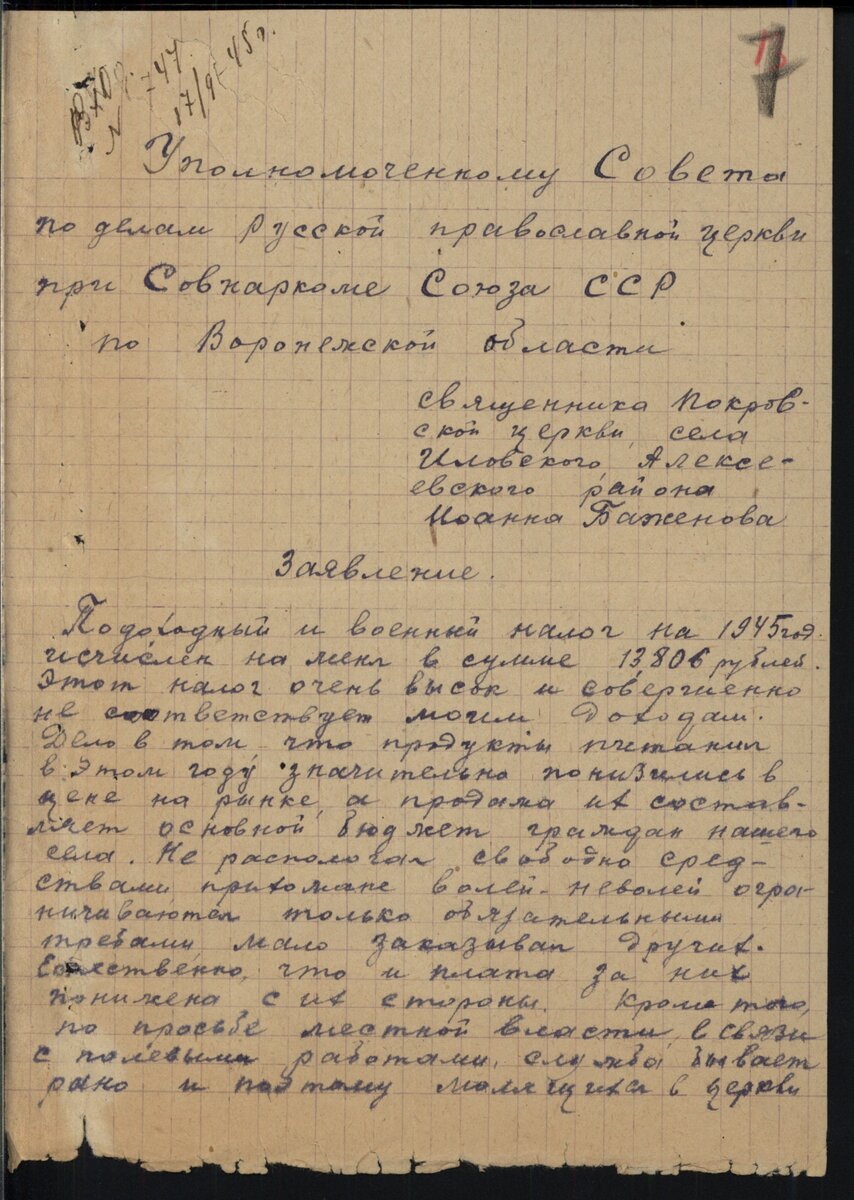 Вход.
N 747
17/9 45 г.
7
Уполномоченному Совета
по делам Русской православной церкви
при Совнаркоме Союза ССР
по Воронежской области
священника Покров-
ской церкви, села
Иловского, Алексе-
евского района
Иоанна Баженова
Заявление.
Подоходный и военный налог на 1945 год
исчислен на меня в сумме 13806 рублей.
Этот налог очень высок и совершенно
не соответствует моим доходам.
Дело в том что продукты питания
в этом году значительно понизились в
цене на рынке, а продажа их состав-
ляет основной бюджет граждан нашего
села. Не распологая свободно сред-
ствами прихожане волей-неволей огра-
ничиваются только обязательными
требами, мало заказывая других.
Естественно, что и плата за них
понижена с их стороны. Кроме того,
по просьбе местной власти, в связи
с полевыми работами, служба бывает
рано и поэтому молящихся в церкви